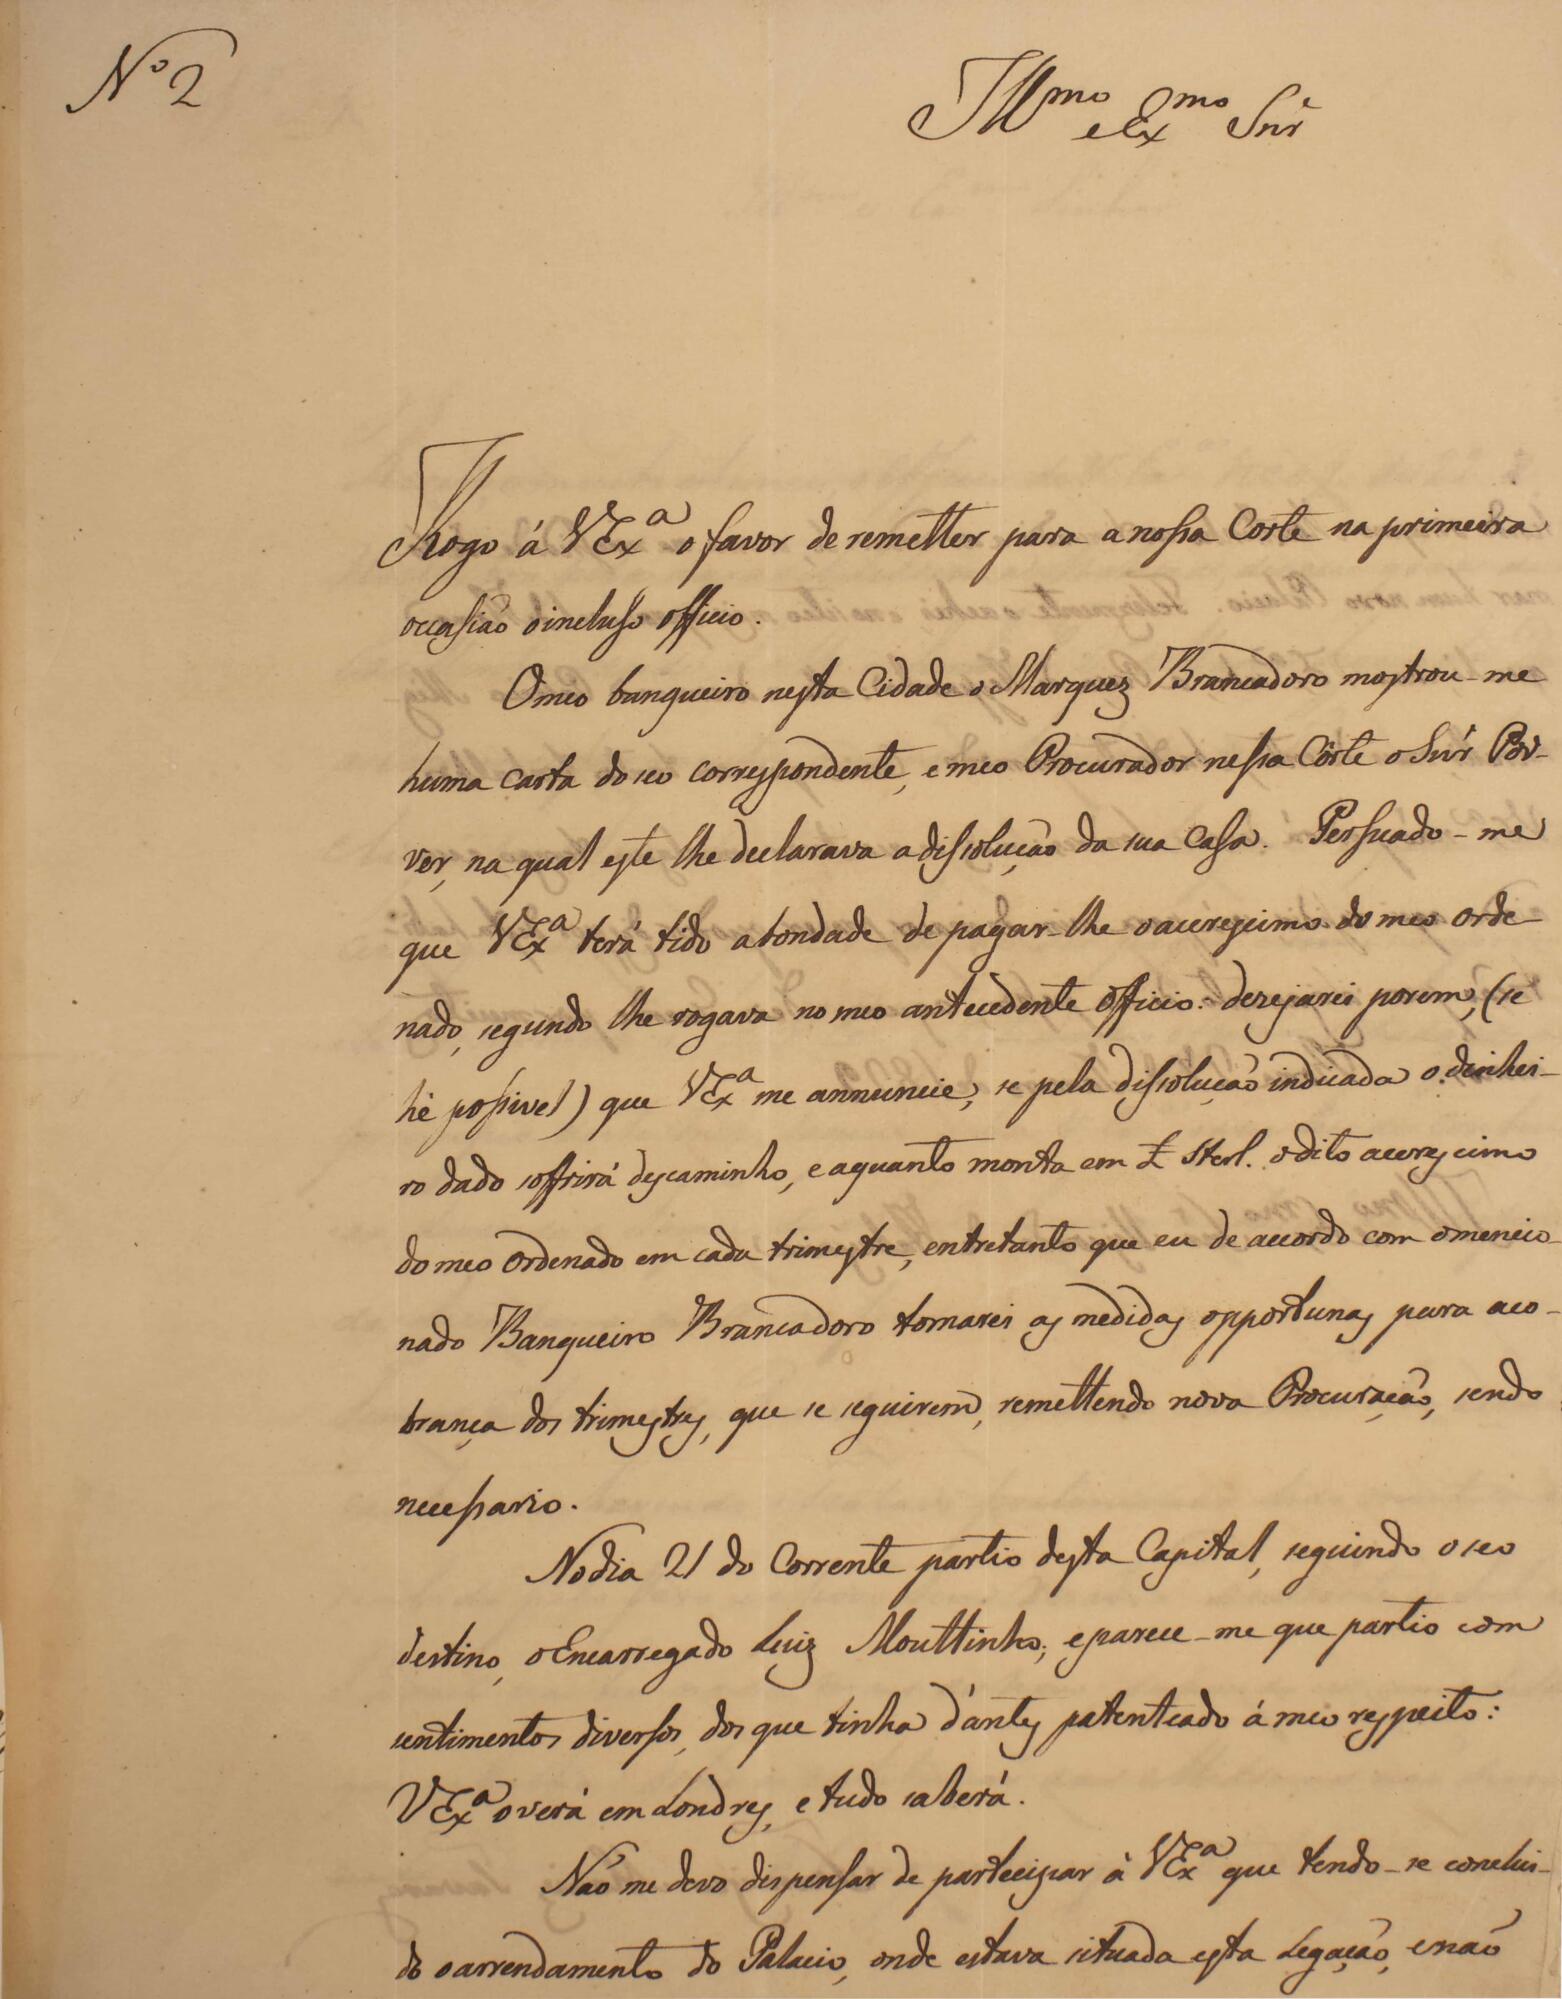 Nº 2
Illmo e Exmo Snr
Rogo á VExª o favor de remetter para a nossa Corte na primeira
occasião o incluso officio.
O meo banqueiro nesta Cidade o Marquez Brancadoro mostrou-me
huma carta do seo correspondente, e meo Procurador nessa Côrte o Snr Por-
ver, na qual este lhe declarava a dissolução da sua Casa. Persuado-me
que VExª terá tido a bondade de pagar-lhe o accrescimo do meo orde
nado, segundo lhe rogava no meo antecedente officio: dezejarei porem, (se
hé possivel) que VExª me annuncie, se pela dissolução indicada o dinhei-
ro dado soffrirá descaminho, e a quanto monta em £ Sterl. o dito accrescimo
do meo ordenado em cada trimestre, entretanto que eu de accordo com o mencio-
nado Banqueiro Brancadoro tomarei as medidas opportunas para a co-
brança dos trimestres, que se seguirem, remettendo nova Procuração, sendo
necessario.
No dia 21 do Corrente partio desta Capital, seguindo o seo
destino, o Encarregado Luiz Mouttinho; e parece-me que partio com
sentimentos diversos, dos que tinha d'antes patenteado á meo respeito:
VExª o verá em Londres, e tudo saberá.
Não me devo dispensar de partecipar à VExª que tendo-se conclui-
do o arrendamento do Palacio, onde estava situada esta Legação, e não